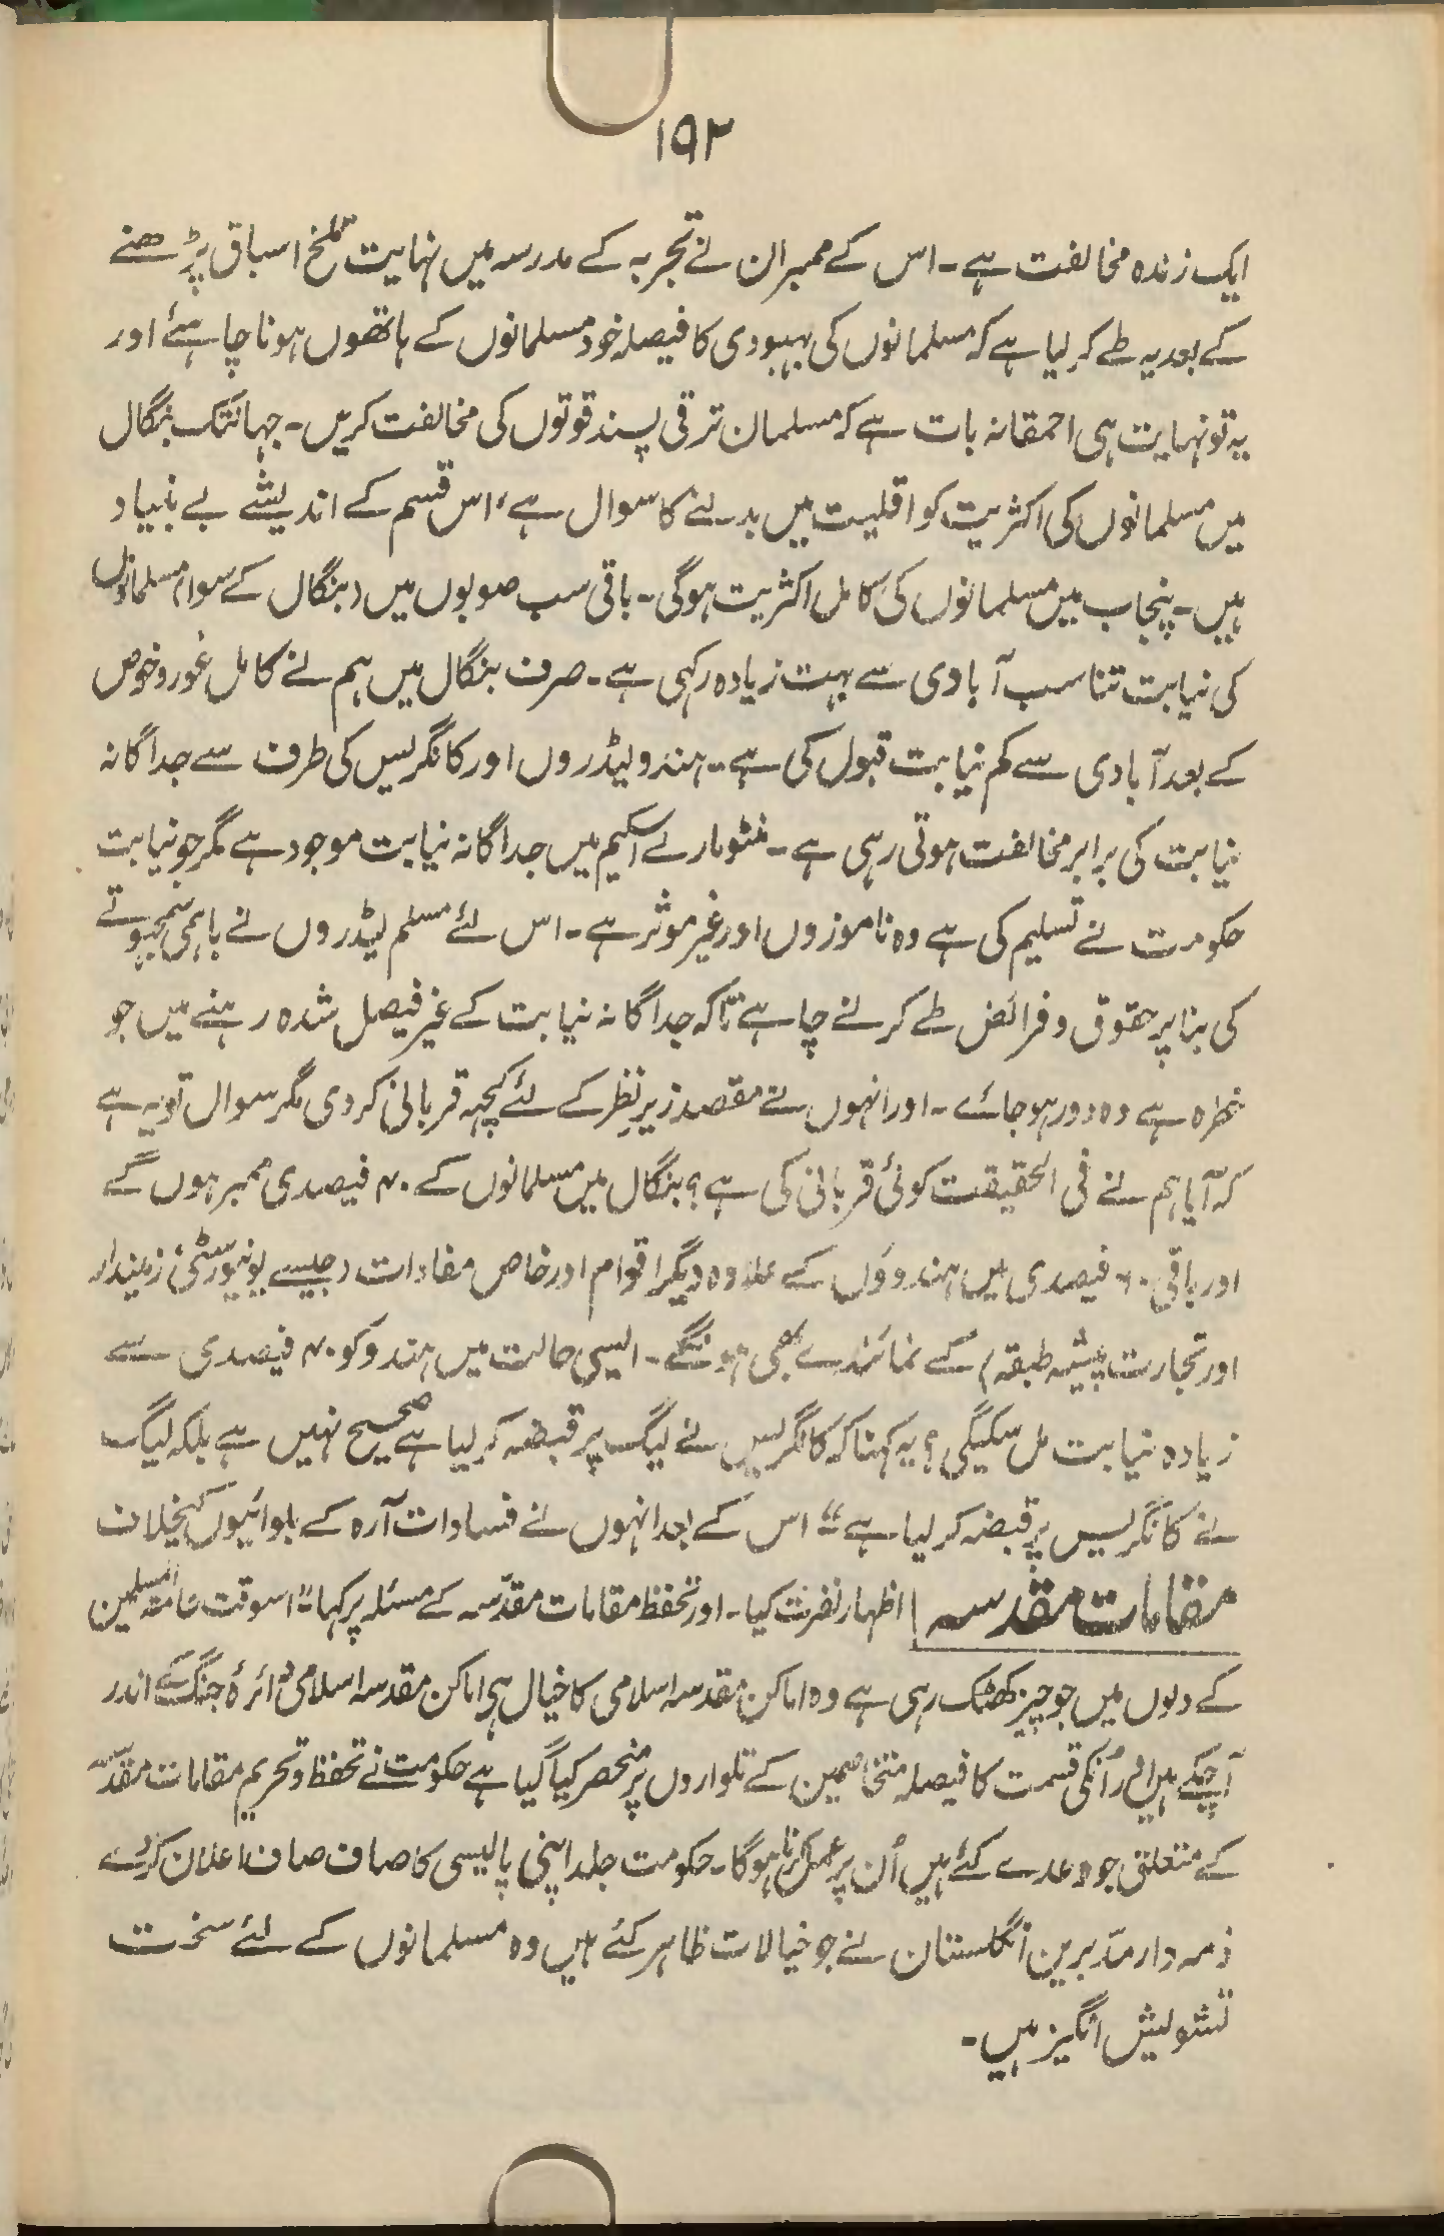 ۱۹۲
ایک زندہ مخالفت ہے۔ اس کے ممبران نے تجربہ کے مدرسہ میں نہایت تلخ اسباق پڑھنے
کے بعد یہ طے کر لیا ہے کہ مسلمانوں کی بہبودی کا فیصلہ خود مسلمانوں کے ہاتھوں ہونا چاہئے اور
یہ تو نہایت ہی احمقانہ بات ہے کہ مسلمان ترقی پسند قوتوں کی مخالفت کریں۔ جہانتک بنگال
میں مسلمانوں کی اکثریت کو اقلیت میں بدلنے کا سوال ہے، اس قسم کے اندیشے بے بنیاد
ہیں۔ پنجاب میں مسلمانوں کی کامل اکثریت ہوگی۔ باقی سب صوبوں میں (بنگال کے سوا) مسلمانوں
کی نیابت تناسب آبادی سے بہت زیادہ رکہی ہے۔ صرف بنگال میں ہم نے کامل غور و خوض
کے بعد آبادی سے کم نیابت قبول کی ہے۔ ہندو لیڈروں اور کانگریس کی طرف سے جداگانہ
نیابت کی برابر مخالفت ہوتی رہی ہے۔ منٹو مارلے اسکیم میں جداگانہ نیابت موجود ہے مگر جو نیابت
حکومت نے تسلیم کی ہے وہ ناموزوں اور غیر موثر ہے۔ اس لئے مسلم لیڈروں نے باہمی سمجہوتے
کی بنا پر حقوق و فرائض طے کرنے چاہے تاکہ جداگانہ نیابت کے غیر فیصل شدہ رہنے میں جو
خطرہ ہے وہ دور ہو جائے۔ اور انہوں نے مقصد زیرِ نظر کے لئے کچہہ قربانی کر دی مگر سوال تو یہ ہے
کہ آیا ہم نے فی الحقیقت کوئی قربانی کی ہے؟ بنگال میں مسلمانوں کے ۴۰ فیصدی ممبر ہوں گے
اور باقی ۶۰ فیصدی میں ہندوؤں کے علاوہ دیگر اقوام اور خاص مفادات (جیسے یونیورسٹی، زمیندار
اور تجارت پیشہ طبقہ) کے نمائندے بھی ہونگے۔ ایسی حالت میں ہندو کو ۴۰ فیصدی سے
زیادہ نیابت مل سکیگی؟ یہ کہنا کہ کانگریس نے لیگ پر قبضہ کر لیا ہے صحیح نہیں ہے بلکہ لیگ
نے کانگریس پر قبضہ کر لیا ہے“ اس کے بعد انہوں نے فسادات آرہ کے بلوائیوں کیخلاف
مقامات مقدسہ | اظہار نفرت کیا۔ اور تحفظ مقامات مقدّسہ کے مسئلہ پر کہا ”اسوقت عامۃ المسلمین
کے دلوں میں جو چیز کھٹک رہی ہے وہ اماکن مقدسہ اسلامی کا خیال ہی اماکن مقدسہ اسلامی دائرۂ جنگ کے اندر
آچکے ہیں اور اُنکی قسمت کا فیصلہ متخاصمین کے تلواروں پر منحصر کیا گیا ہے حکومت نے تحفظ و تحریم مقامات مقدّسہ
کے متعلق جو وعدے کئے ہیں اُن پر عمل کرنا ہوگا۔ حکومت جلد اپنی پالیسی کا صاف صاف اعلان کردے
ذمہ دار مدّبرین انگلستان نے جو خیالات ظاہر کئے ہیں وہ مسلمانوں کے لئے سخت
تشویش انگیز ہیں۔